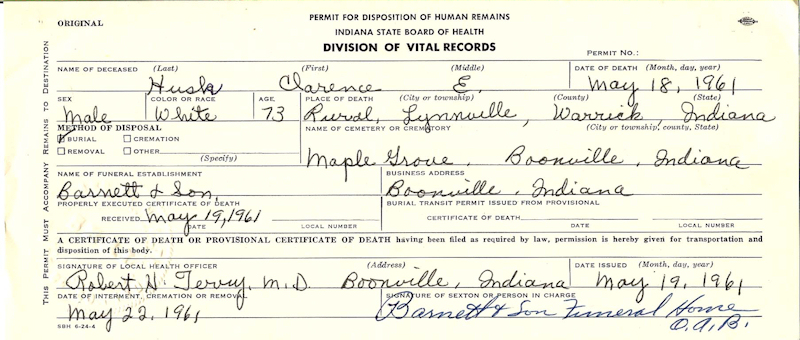 ORIGINAL
PERMIT FOR DISPOSITION OF HUMAN REMAINS
INDIANA STATE BOARD OF HEALTH
DIVISION OF VITAL RECORDS
PERMIT NO.:
THIS PERMIT MUST ACCOMPANY REMAINS TO DESTINATION
NAME OF DECEASED (Last) (First) (Middle) DATE OF DEATH (Month, day, year)
Husk Clarence E. May 18, 1961
SEX COLOR OR RACE AGE PLACE OF DEATH (City or township) (County) (State)
Male White 73 Rural, Lynnville, Warrick, Indiana
METHOD OF DISPOSAL NAME OF CEMETERY OR CREMATORY (City or township, county, State)
BURIAL CREMATION
REMOVAL OTHER (Specify)
Maple Grove, Boonville, Indiana
NAME OF FUNERAL ESTABLISHMENT BUSINESS ADDRESS
Barnett & Son, Boonville, Indiana
PROPERLY EXECUTED CERTIFICATE OF DEATH BURIAL TRANSIT PERMIT ISSUED FROM PROVISIONAL
RECEIVED May 19, 1961 CERTIFICATE OF DEATH
DATE LOCAL NUMBER DATE LOCAL NUMBER
A CERTIFICATE OF DEATH OR PROVISIONAL CERTIFICATE OF DEATH having been filed as required by law, permission is hereby given for transportation and
disposition of this body.
SIGNATURE OF LOCAL HEALTH OFFICER (Address) DATE ISSUED (Month, day, year)
Robert H. M.D. Boonville, Indiana May 19, 1961
DATE OF INTERMENT, CREMATION OR REMOVAL SIGNATURE OF SEXTON OR PERSON IN CHARGE
May 22, 1961 Barnett & Son Funeral Home
O.A.B.
SBH 6-24-4